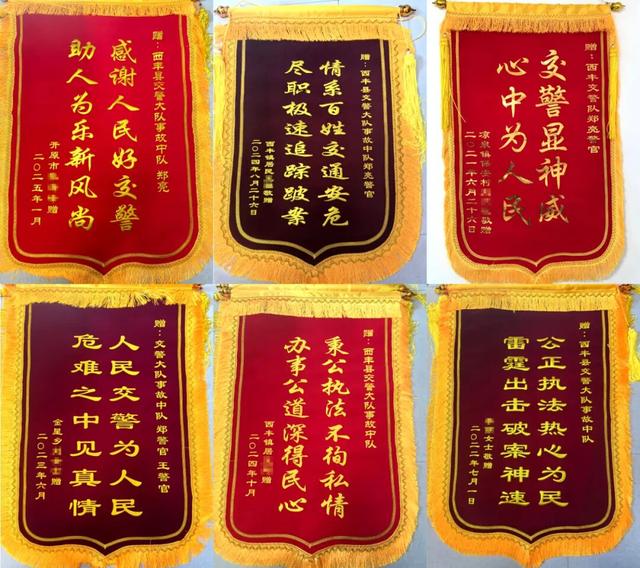 赠：西丰县交警大队事故中队 郑亮
感谢人民好交警
助人为乐新风尚
开原市 赠
二〇二五年一月
赠：西丰县交警大队事故中队郑亮警官
情系百姓交通安危
尽职极速追踪跛案
西丰镇居民 敬赠
二〇二四年八月二十六日
赠：西丰交警队郑亮警官
交警显神威
心中为人民
凉泉镇保安村 敬赠
二〇二一年六月二十六日
赠：交警大队事故中队 郑警官 王警官
人民交警为人民
危难之中见真情
金星乡 赠
二〇二三年六月
赠：西丰县交警大队事故中队
秉公执法不徇私情
办事公道深得民心
西丰镇居 赠
二〇二四年十月
赠：西丰县交警大队事故中队
公正执法热心为民
雷霆出击破案神速
女士敬赠
二〇二二年七月一日